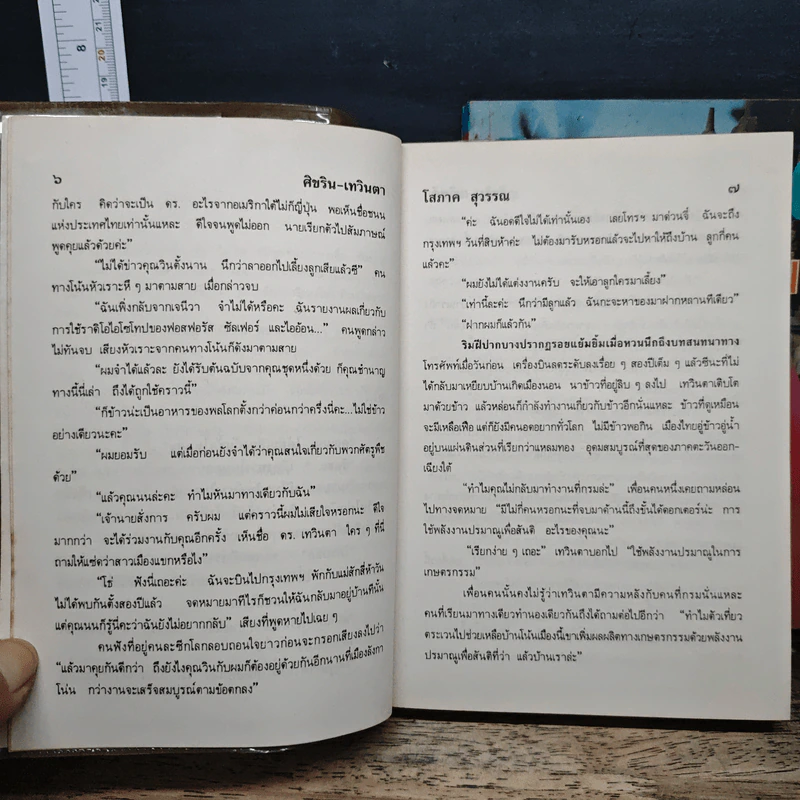 ๖
ศิขริน-เทวินตา
กับใคร คิดว่าจะเป็น ดร. อะไรจากอเมริกาใต้ไม่ก็ญี่ปุ่น พอเห็นชื่อชนน
แห่งประเทศไทยเท่านั้นแหละ ดีใจจนพูดไม่ออก นายเรียกตัวไปสัมภาษณ์
พูดคุยแล้วด้วยค่ะ”
“ไม่ได้ข่าวคุณวินตั้งนาน นึกว่าลาออกไปเลี้ยงลูกเสียแล้วซี” คน
ทางโน้นหัวเราะหึ ๆ มาตามสาย เมื่อกล่าวจบ
“ฉันเพิ่งกลับจากเจนีวา จำไม่ได้หรือคะ ฉันรายงานผลเกี่ยวกับ
การใช้ราดิโอไอโซโทปของฟอสฟอรัส ซัลเฟอร์ และไอออ้น...” คนพูดกล่าว
ไม่ทันจบ เสียงหัวเราะจากคนทางโน้นก็ดังมาตามสาย
“ผมจำได้แล้วละ ยังได้รับต้นฉบับจากคุณชุดหนึ่งด้วย ก็คุณชำนาญ
ทางนี้นี่เล่า ถึงได้ถูกใช้คราวนี้”
“ก็ข้าวน่ะเป็นอาหารของพลโลกตั้งกว่าค่อนกว่าครึ่งนี่คะ...ไม่ใช่ข้าว
อย่างเดียวนะคะ”
“ผมยอมรับ แต่เมื่อก่อนยังจำได้ว่าคุณสนใจเกี่ยวกับพวกศัตรูพืช
ด้วย”
“แล้วคุณนนล่ะคะ ทำไมหันมาทางเดียวกับฉัน”
“เจ้านายสั่งการ ครับผม แต่คราวนี้ผมไม่เสียใจหรอกนะ ดีใจ
มากกว่า จะได้ร่วมงานกับคุณอีกครั้ง เห็นชื่อ ดร. เทวินตา ใคร ๆ ที่นี่
ถามให้แซ่ดว่าสาวเมืองแขกหรือไง”
“โธ่ ฟังนี่เถอะค่ะ ฉันจะบินไปกรุงเทพฯ พักกับแม่สักสี่ห้าวัน
ไม่ได้พบกันตั้งสองปีแล้ว จดหมายมาทีไรก็ชวนให้ฉันกลับมาอยู่บ้านทีนั้น
แต่คุณนนก็รู้นี่คะว่าฉันยังไม่อยากกลับ” เสียงที่พูดหายไปเฉย ๆ
คนฟังที่อยู่คนละซีกโลกลอบถอนใจยาวก่อนจะกรอกเสียงลงไปว่า
“แล้วมาคุยกันดีกว่า ถึงยังไงคุณวินกับผมก็ต้องอยู่ด้วยกันอีกนานที่เมืองลังกา
โน่น กว่างานจะเสร็จสมบูรณ์ตามข้อตกลง”
โสภาค สุวรรณ
๗
“ค่ะ ฉันอดดีใจไม่ได้เท่านั้นเอง เลยโทรฯ มาด่วนจี๋ ฉันจะถึง
กรุงเทพฯ วันที่สิบห้าค่ะ ไม่ต้องมารับหรอกแล้วจะไปหาให้ถึงบ้าน ลูกกี่คน
แล้วคะ”
“ผมยังไม่ได้แต่งงานครับ จะให้เอาลูกใครมาเลี้ยง”
“เท่านี้ละค่ะ นึกว่ามีลูกแล้ว ฉันกะจะหาของมาฝากหลานทีเดียว”
“ฝากผมก็แล้วกัน”
ริมฝีปากบางปรากฏรอยแย้มยิ้มเมื่อหวนนึกถึงบทสนทนาทาง
โทรศัพท์เมื่อวันก่อน เครื่องบินลดระดับลงเรื่อย ๆ สองปีเต็ม ๆ แล้วซีนะที่ไม่
ได้กลับมาเหยียบบ้านเกิดเมืองนอน นาข้าวที่อยู่ลิบ ๆ ลงไป เทวินตาเติบโต
มาด้วยข้าว แล้วหล่อนก็กำลังทำงานเกี่ยวกับข้าวอีกนั่นแหละ ข้าวที่ดูเหมือน
จะมีเหลือเฟือ แต่ก็ยังมีคนอดอยากทั่วโลก ไม่มีข้าวพอกิน เมืองไทยอู่ข้าวอู่น้ำ
อยู่บนแผ่นดินส่วนที่เรียกว่าแหลมทอง อุดมสมบูรณ์ที่สุดของภาคตะวันออก-
เฉียงใต้
“ทำไมคุณไม่กลับมาทำงานที่กรมล่ะ” เพื่อนคนหนึ่งเคยถามหล่อน
ไปทางจดหมาย “มีไม่กี่คนหรอกนะที่จบมาด้านนี้ถึงขั้นได้ดอกเตอร์น่ะ การ
ใช้พลังงานปรมาณูเพื่อสันติ อะไรของคุณนะ”
“เรียกง่าย ๆ เถอะ” เทวินตาบอกไป “ใช้พลังงานปรมาณูในการ
เกษตรกรรม”
เพื่อนคนนั้นคงไม่รู้ว่าเทวินตามีความหลังกับคนที่กรมนั่นแหละ
คนที่เรียนมาทางเดียวทำนองเดียวกันถึงได้ถามต่อไปอีกว่า “ทำไมตัวเที่ยว
ตระเวนไปช่วยเหลือบ้านโน้นเมืองนี้เขาเพิ่มผลผลิตทางเกษตรกรรมด้วยพลังงาน
ปรมาณูเพื่อสันติที่ว่า แล้วบ้านเราล่ะ”
8
20
19